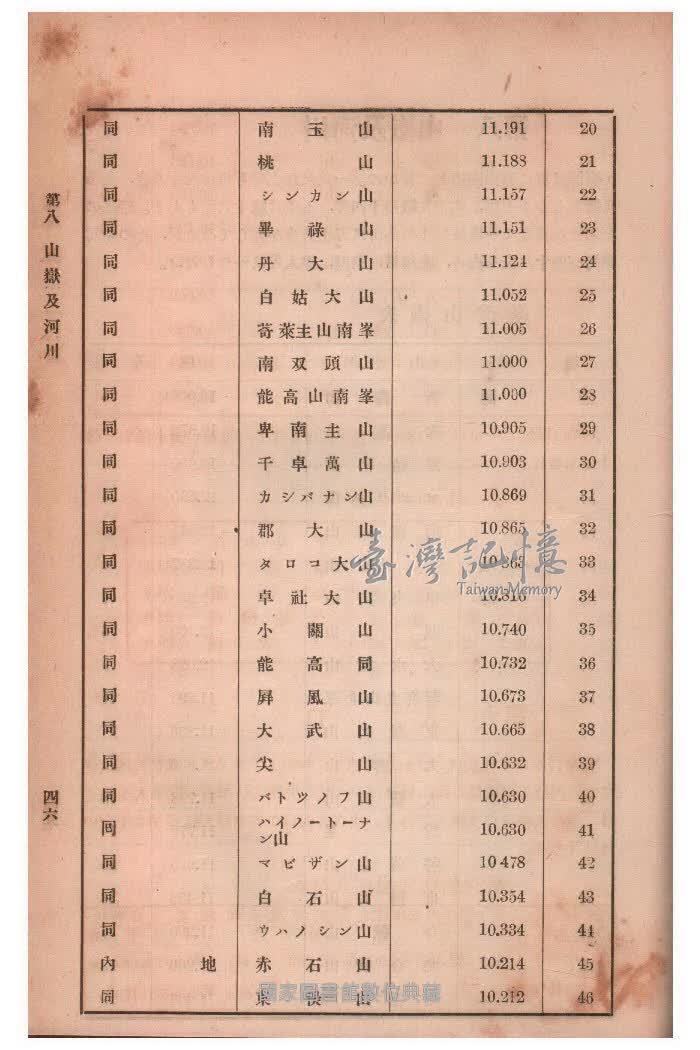 第八 山嶽及河川
四六
同 南玉山 11.191 20
同 桃山 11.188 21
同 シンカン山 11.157 22
同 畢祿山 11.151 23
同 丹大山 11.124 24
同 白姑大山 11.052 25
同 萊主山南峯 11.005 26
同 南双頭山 11.000 27
同 能高山南峯 11.000 28
同 卑南主山 10.905 29
同 千卓萬山 10.903 30
同 カシバナン山 10.869 31
同 郡大山 10.865 32
同 タロコ大山 10.863 33
同 卓社大山 10.816 34
同 小關山 10.740 35
同 能高同 10.732 36
同 屛風山 10.673 37
同 大武山 10.665 38
同 尖山 10.632 39
同 バトツノフ山 10.630 40
同 ハイノートーナ
ン山 10.630 41
同 マビザン山 10 478 42
同 白石山 10.354 43
同 ウハノシン山 10.334 44
內地 赤石山 10.214 45
同 山 10.212 46
臺灣記憶
Taiwan Memory
國家圖書館數位典藏